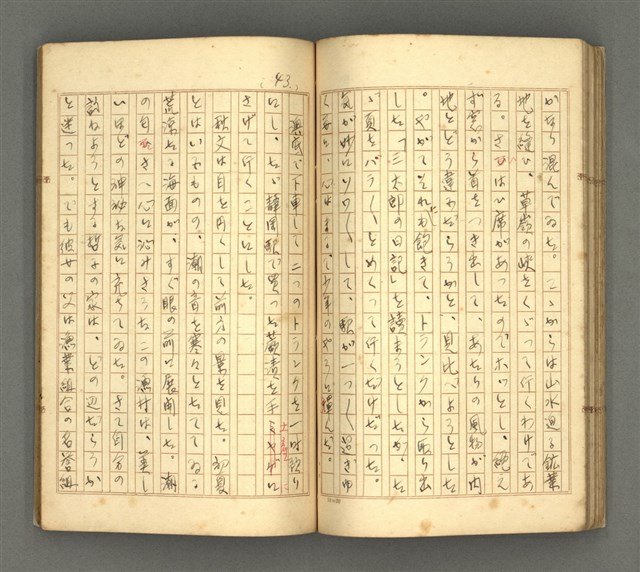 がなり混んでゐた。こゝからは山水迫る鉱業
地を縫ひ、草嶺の峡をくゞって行くわけであ
る。さひはい席があったのでホッとし、絶え
ず窓から首をつき出して、あたりの風物が内
地とどう違ふだらうかと、見比べようとした
。やがてそれにも飽きて、トランクから取り出
した「三太郎の日記」を讀まうとしたが、た
ゞ頁をパラ〳〵とめくって行くだけだった。
気が妙にソワ〳〵して、駅が一つ〳〵過ぎゆ
く毎に、心はまるで少年のやうに躍んだ。
(43.)
下車して二つのトランクを一時預り
にし、たゞ静岡駅で買った茶漬を手
さげて行くことにした。
秋文は目を円くして前方の景を見た。初夏
とはいふものの、潮の音を寒々とたててゐる
荒涼たる海面が、すぐ眼の前に展開した。潮
の匂ひさへ心に沁みさうなこの漁村は、美し
いほどの神秘な気に充ちてゐた。さて自分の
訪ねようとする哲子の家は、どの辺だらうか
と迷った。でも彼女の父は漁業組合の名誉組